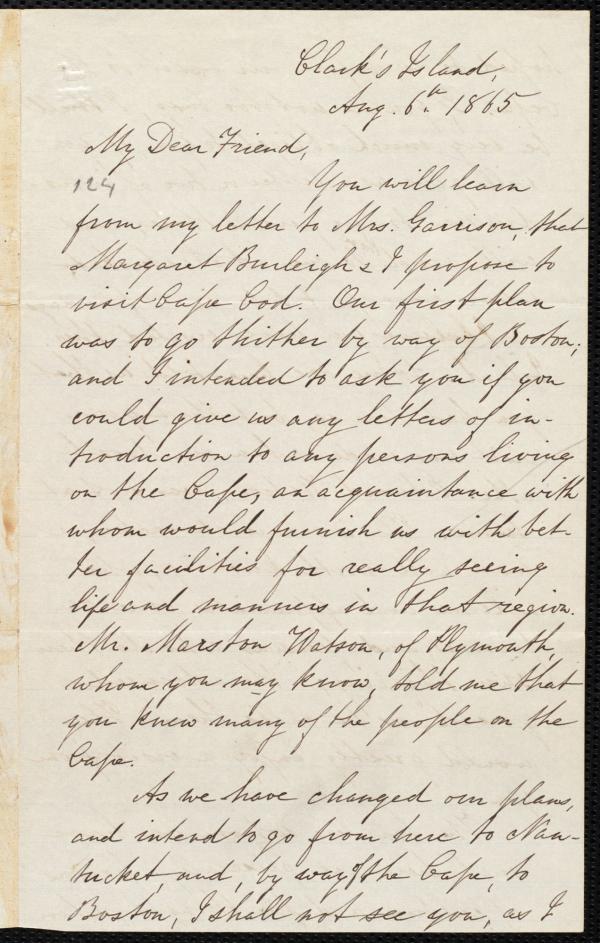 Clark's Island,
Aug. 6th. 1865
My Dear Friend,
124
You will learn
from my letter to Mrs. Garrison, that
Margaret Burleigh & I propose to
visit Cape Cod. Our first plan
was to go thither by way of Boston;
and I intended to ask you if you
could give us any letters of in-
troduction to any persons living
on the Cape, an acquaintance with
whom would furnish us with bet-
ter facilities for really seeing
life and manners in that region.
Mr. Marston Watson, of Plymouth,
whom you may know, told me that
you knew many of the people on the
Cape.
As we have changed our plans,
and intend to go from here to Nan-
tucket, and, by way of the Cape, to
Boston, I shall not see you, as I